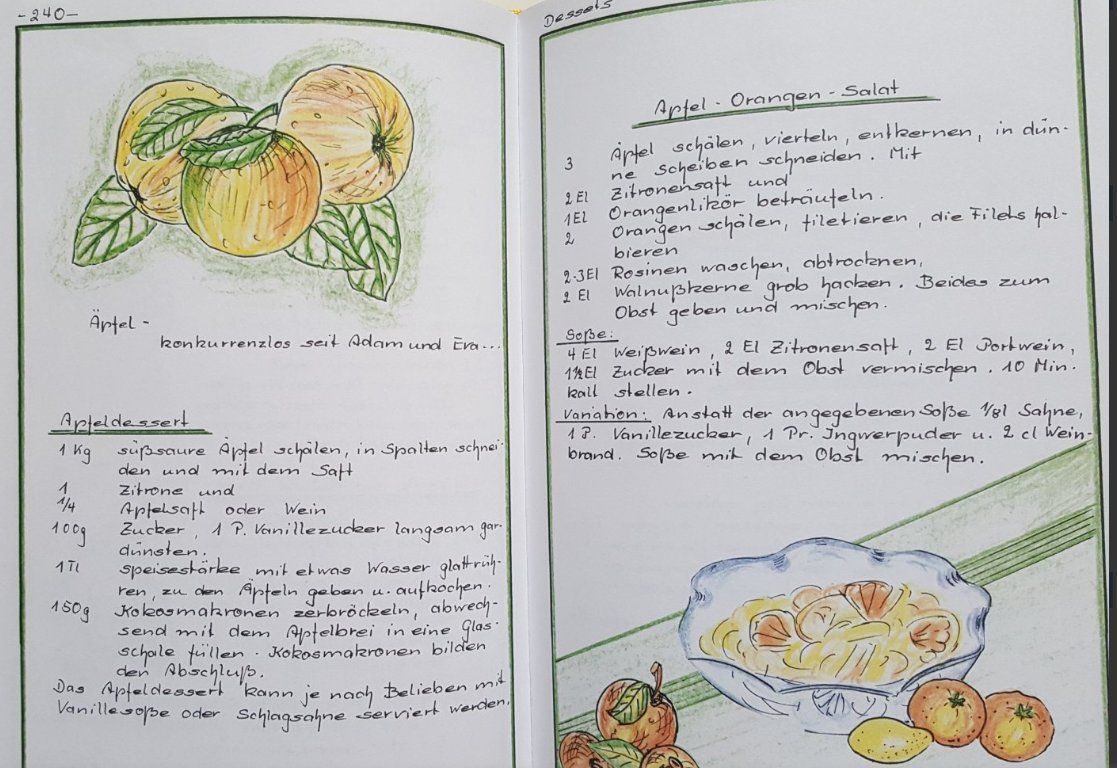 -240-
Äpfel -
konkurrenzlos seit Adam und Eva...
Apfeldessert
1 Kg süßsaure Äpfel schälen, in Spalten schnei-
den und mit dem Saft
1 Zitrone und
1/4 Apfelsaft oder Wein
100g Zucker, 1 P. Vanillezucker langsam gar-
dünsten.
1 Tl Speisestärke mit etwas Wasser glattrüh-
ren, zu den Äpfeln geben u. aufkochen.
150g Kokosmakronen zerbröckeln, abwech-
send mit dem Apfelbrei in eine Glas-
schale füllen. Kokosmakronen bilden
den Abschluß.
Das Apfeldessert kann je nach Belieben mit
Vanillesoße oder Schlagsahne serviert werden.
Desserts
Apfel - Orangen - Salat
3 Äpfel schälen, vierteln, entkernen, in dün-
ne Scheiben schneiden. Mit
2 El Zitronensaft und
1 El Orangenlikör beträufeln.
2 Orangen schälen, filetieren, die Filets hal-
bieren
2-3 El Rosinen waschen, abtrocknen,
2 El Walnußkerne grob hacken. Beides zum
Obst geben und mischen.
Soße:
4 El Weißwein, 2 El Zitronensaft, 2 El Portwein,
1½ El Zucker mit dem Obst vermischen. 10 Min.
kalt stellen.
Variation: Anstatt der angegebenen Soße 1/8l Sahne,
1 P. Vanillezucker, 1 Pr. Ingwerpuder u. 2 cl Wein-
brand. Soße mit dem Obst mischen.